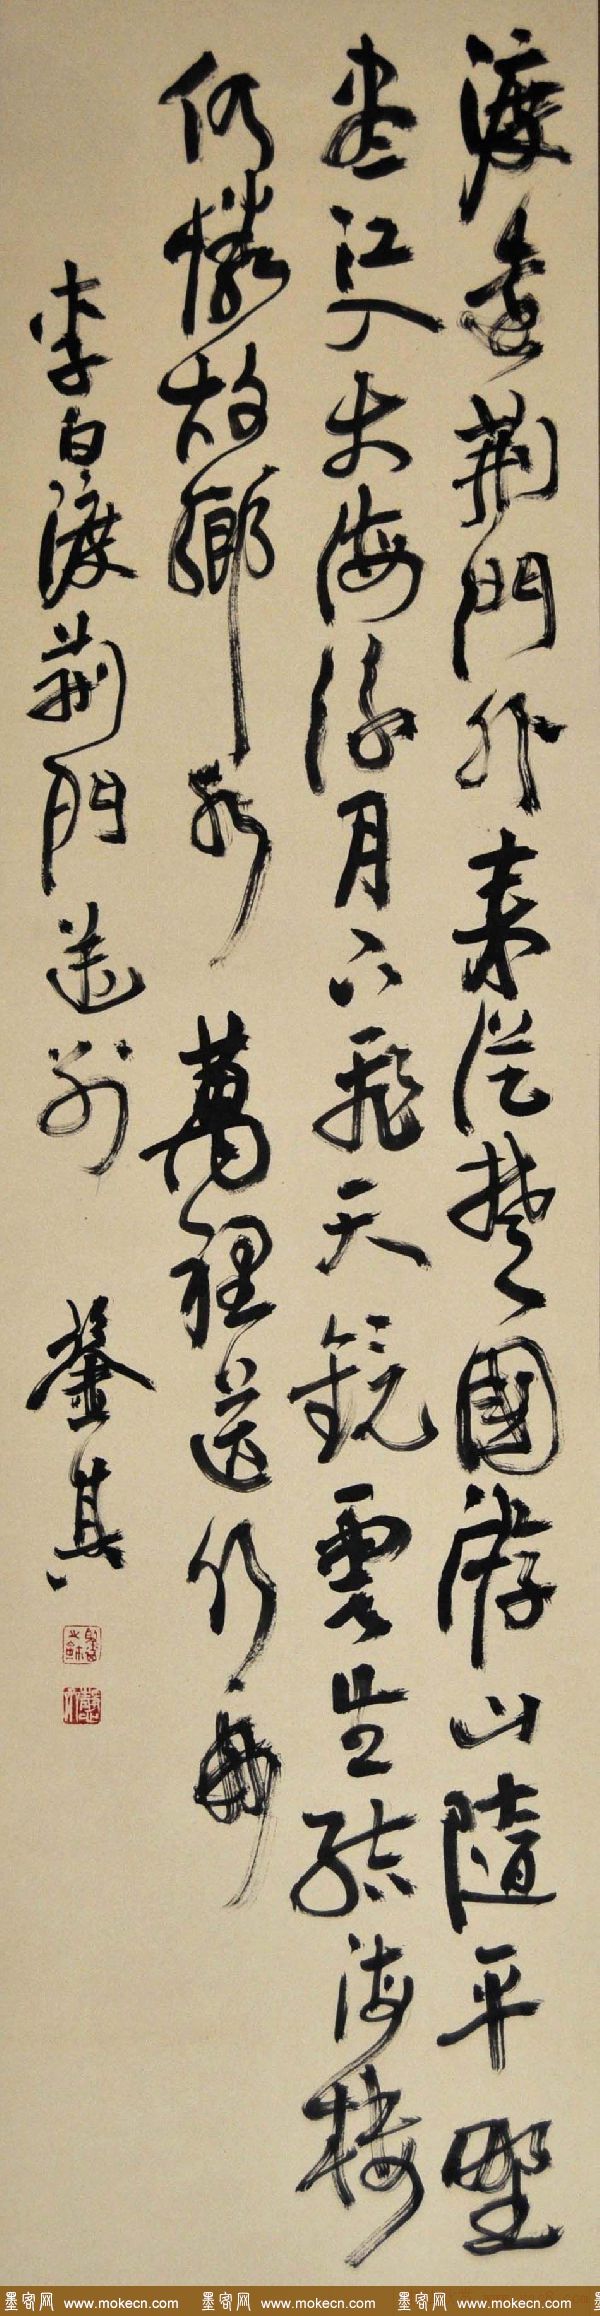 渡遠荆門外来從楚國游山隨平野
盡江入大海流月下飛天鏡雲生結海樓
仍憐故鄉水萬里送行舟
李白渡荆門送別 鑒其
墨客网 www.mokecn.com 墨客网 www.mokecn.com 墨客网 www.mokecn.com